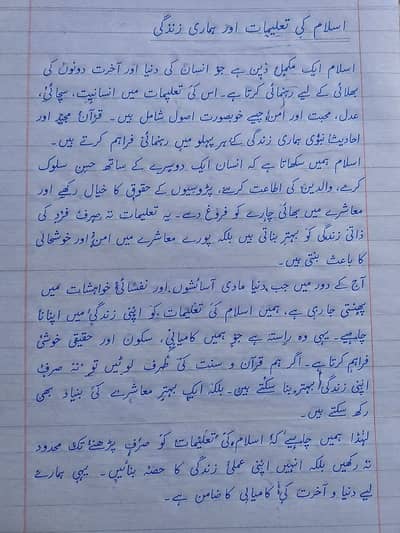 اسلام کی تعلیمات اور ہماری زندگی
اسلام ایک مکمل دین ہے جو انسان کی دنیا اور آخرت دونوں کی
بھلائی کے لیے رہنمائی کرتا ہے۔ اس کی تعلیمات میں انسانیت، سچائی،
عدل، محبت اور امن جیسے خوبصورت اصول شامل ہیں۔ قرآن مجید اور
احادیث نبوی ہماری زندگی کے ہر پہلو میں رہنمائی فراہم کرتے ہیں۔
اسلام ہمیں سکھاتا ہے کہ انسان ایک دوسرے کے ساتھ حسن سلوک
کرے، والدین کی اطاعت کرے، پڑوسیوں کے حقوق کا خیال رکھے اور
معاشرے میں بھائی چارے کو فروغ دے۔ یہ تعلیمات نہ صرف فرد کی
ذاتی زندگی کو بہتر بناتی ہیں بلکہ پورے معاشرے میں امن اور خوشحالی
کا باعث بنتی ہیں۔
آج کے دور میں جب دنیا مادی آسائشوں اور نفسانی خواہشات میں
پھنستی جا رہی ہے، ہمیں اسلام کی تعلیمات کو اپنی زندگی میں اپنانا
چاہیے۔ یہی وہ راستہ ہے جو ہمیں کامیابی، سکون اور حقیقی خوشی
فراہم کرتا ہے۔ اگر ہم قرآن و سنت کی طرف لوٹیں تو نہ صرف
اپنی زندگی بہتر بنا سکتے ہیں۔ بلکہ ایک بہتر معاشرے کی بنیاد بھی
رکھ سکتے ہیں۔
لہٰذا ہمیں چاہیے کہ اسلام کی تعلیمات کو صرف پڑھنے تک محدود
نہ رکھیں بلکہ انہیں اپنی عملی زندگی کا حصہ بنائیں۔ یہی ہمارے
لیے دنیا و آخرت کی کامیابی کا ضامن ہے۔